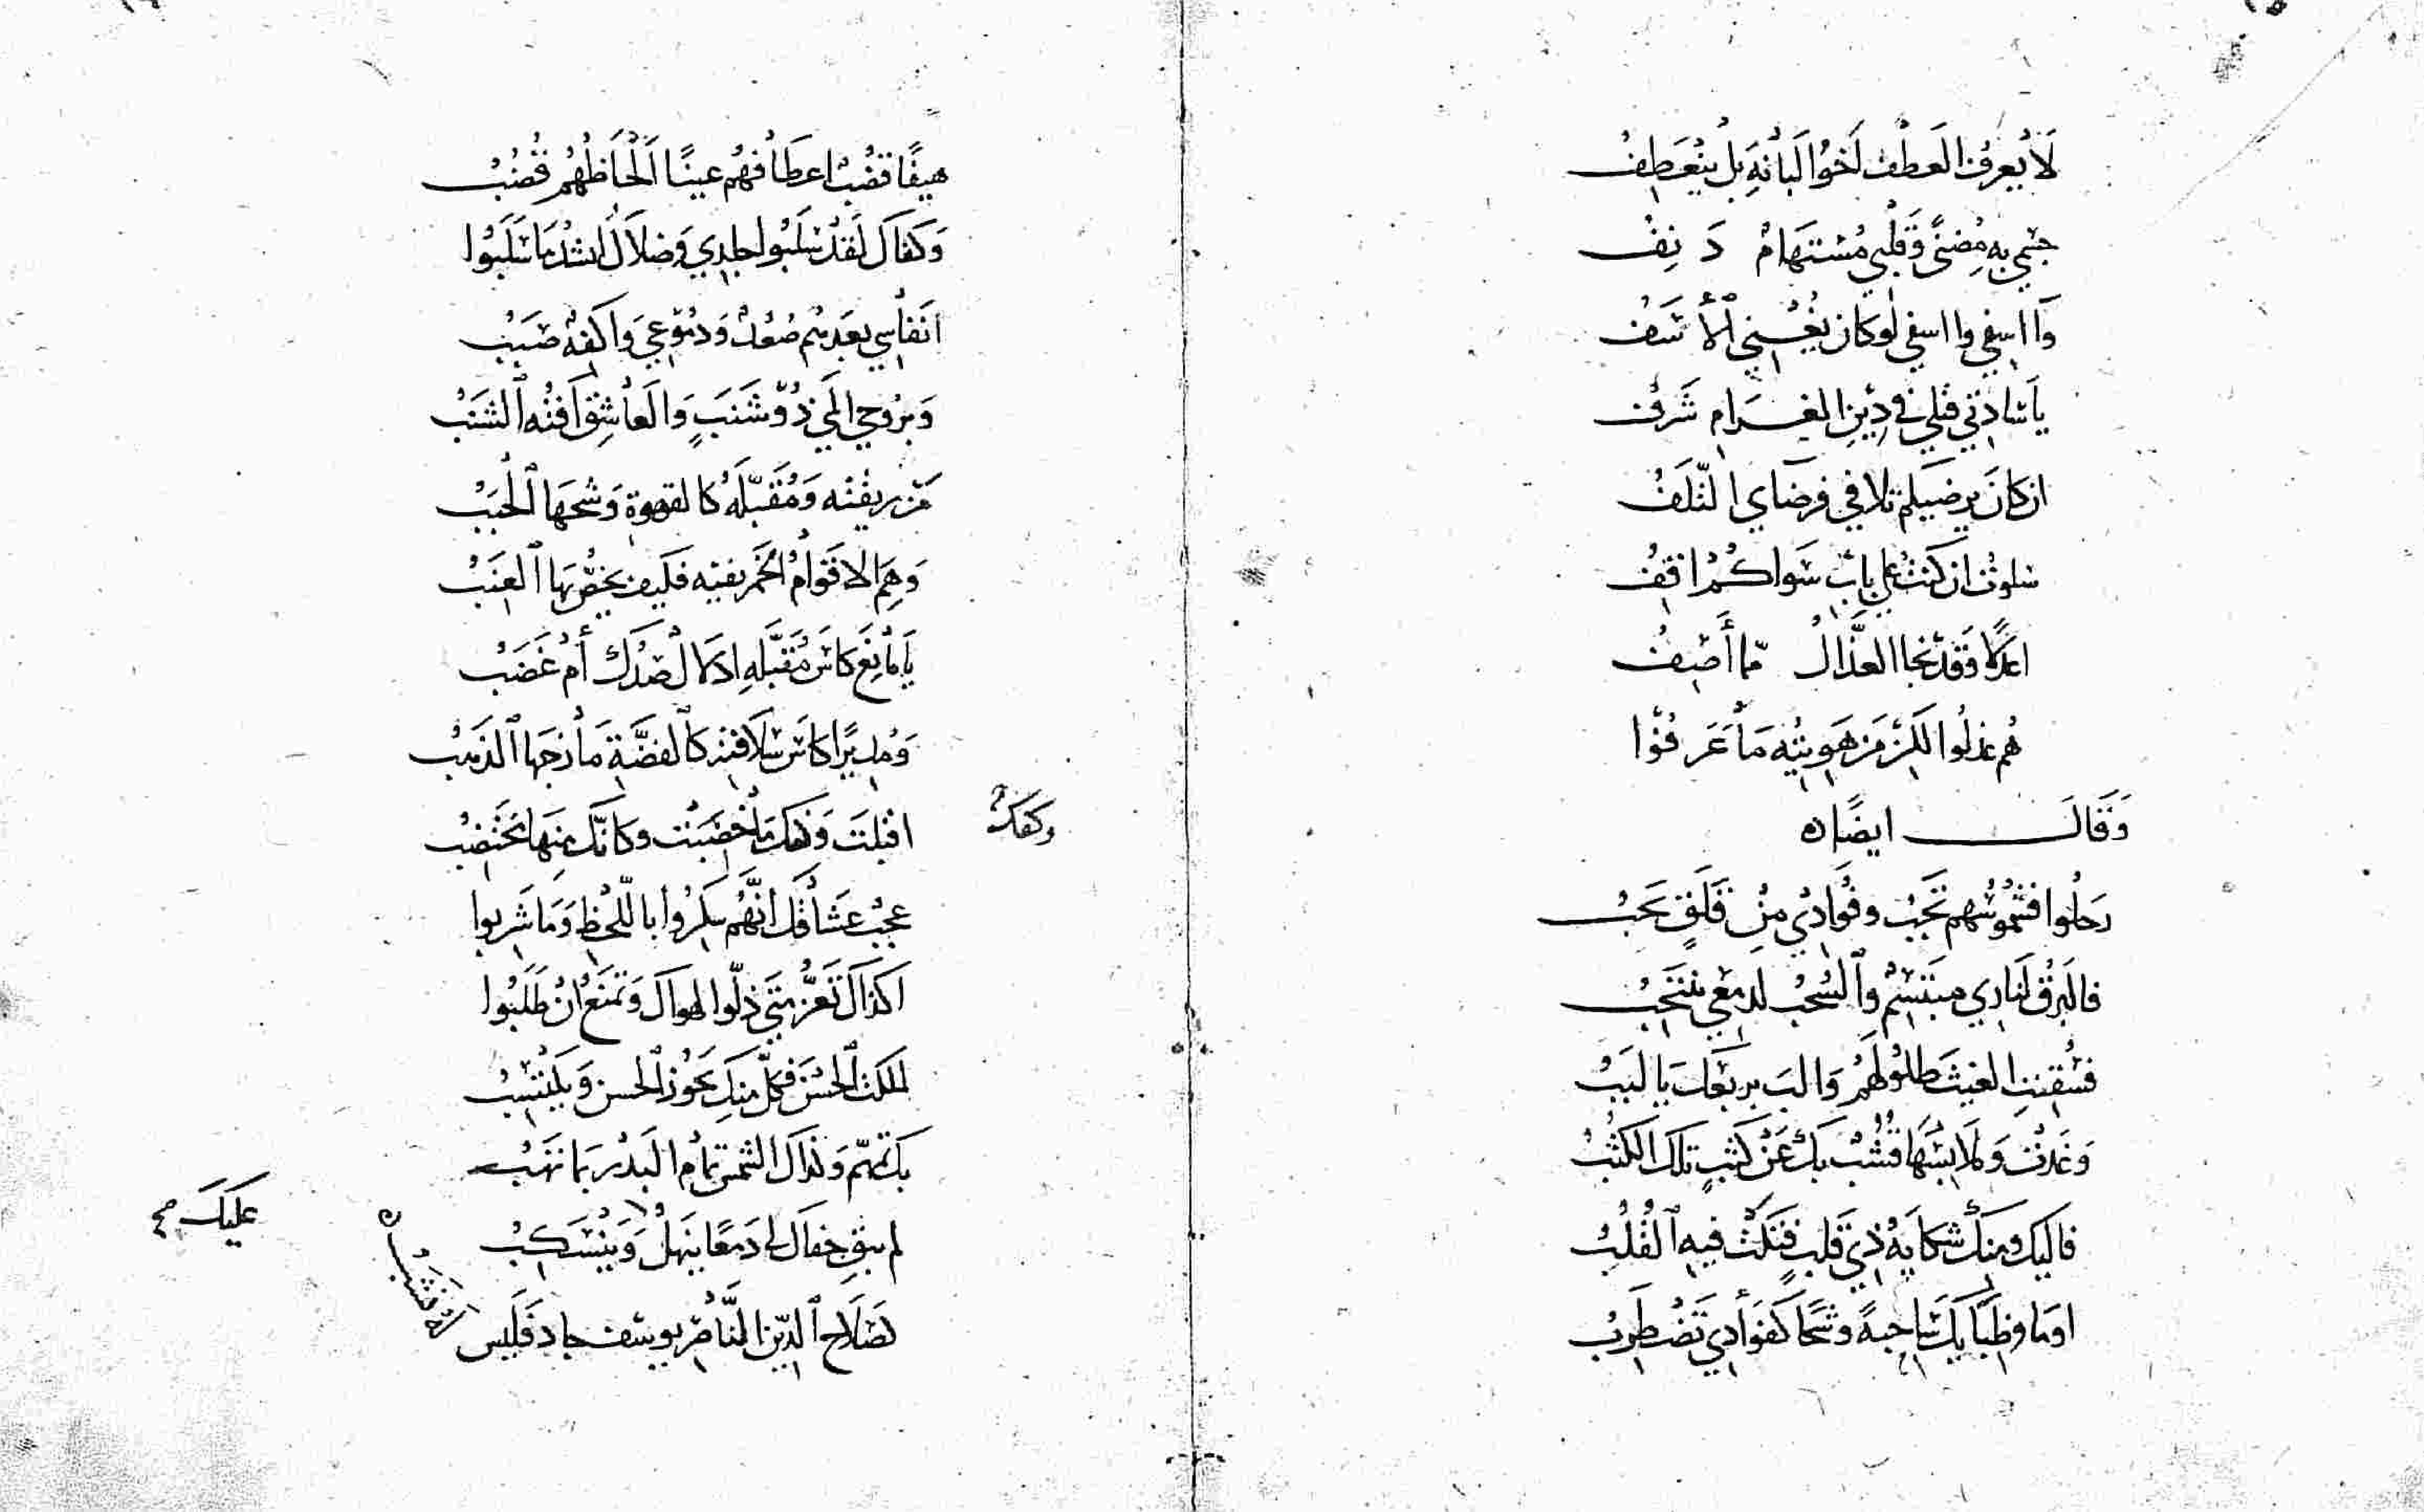 لَا يَعرفُ العَطْفَ أخُو البَانَةِ بَل يَنْعَطِفُ
جسْمي به مُضنىً وَقَلْبي مُسْتَهَامٌ دَنِفُ
وَا اسفي وا اسفي لو كان يُغْنِيني الأسَفُ
يا سَادَتي قَتلي في دِينِ الغَرَامِ شَرَفُ
ان كانَ يرضيكم تلافي فرضَاي التَّلَفُ
سلوتُ ان كنتُ على بابِ سَواكُمُ اقِفُ
اعدلًا وَقد نجا العذَّالُ مّما أَصِفُ
هُم عذلُوا لكن مَن هَويتُه مَا عَرفُوا
وَقَالَ ايضًا ه
رَحلُوا فشُمُوسُهم تَجِبُ وفُؤادي مِن قَلَقٍ يَجِبُ
فالبَرقُ لنادي مبتَسِمٌ وَالسُحبُ لدمعي تنتحِبُ
فسُقِيتِ الغيثَ طلُولَهُمُ وَا لبَبِ رَبعَك يا لبَبُ
وَغَدَت وَملابسُهَا قُشُبٌ بك عَن كَثَبٍ تلكَ الكُثُبُ
فاليك ومنكَ شكايَةُ ذي قَلبٍ فَتَكَتْ فيهِ القُلُبُ
اومَا وظبَاَيكَ سَاحبةً وشحًا كفؤادي تَضْطَرِبُ
هيفًا قضُبٌ اعطَافُهُم عينًا أَلْحَاظُهُم قُضُبُ
وَكفاكَ لقد سَلَبُوا جلدي وَضلالٌ انشدُ مَا سَلَبُوا
انفَاسِي بعدَهُم صُعُدٌ وَدمُوعي وَاكفةٌ صَبَبُ
وَبرُوحي المَى ذُو شَنَبٍ وَالعَاشِقُ آفتُه الشَنَبُ
مَن ريقتُه وَمُقَبّلُهُ كالقهوةِ وَشحَهَا الحَبَبُ
وَهِمَ الاقوَامُ الخَمر بفيه فكيفَ يخُصُّ بهَا العِنَبُ
يَا مَانِعَ كاسَ مُقَبَّلهِ ادَلالٌ صَدُّكَ أَم غَضَبُ
وَمُديرًا كاسَ سُلافتِه كالفضَّةِ مازجَهَا الذهَبُ
اقبلتَ وَكفك مَا خُضبَت وكانّك مِنهَا تختضِبُ
وكفكَ
عجبٌ عشَاقُك انَّهُم سَكِرُوا باللّحظِ وَمَا شرِبوا
اكذاكَ تَعَزُّ متَى ذلّوا لهواكَ وَتمنَعُ ان طَلَبُوا
املكتَ الحُسنَ فكلّ منكَ يحوزُ الحسنَ وَيَكتَسِبُ
بك تمَّ وَذاكَ الشمسُ تمامُ البَدر بمَا تهَبُ
لم يبقِ جفاكَ لي دَمعًا ينهلُّ وَيَنسَكِبُ
عليكَ صح
لصَلاحِ الدّين النَّاصِر يوسُف جاد فَلَيس
لَهُ نَشَبُ ه